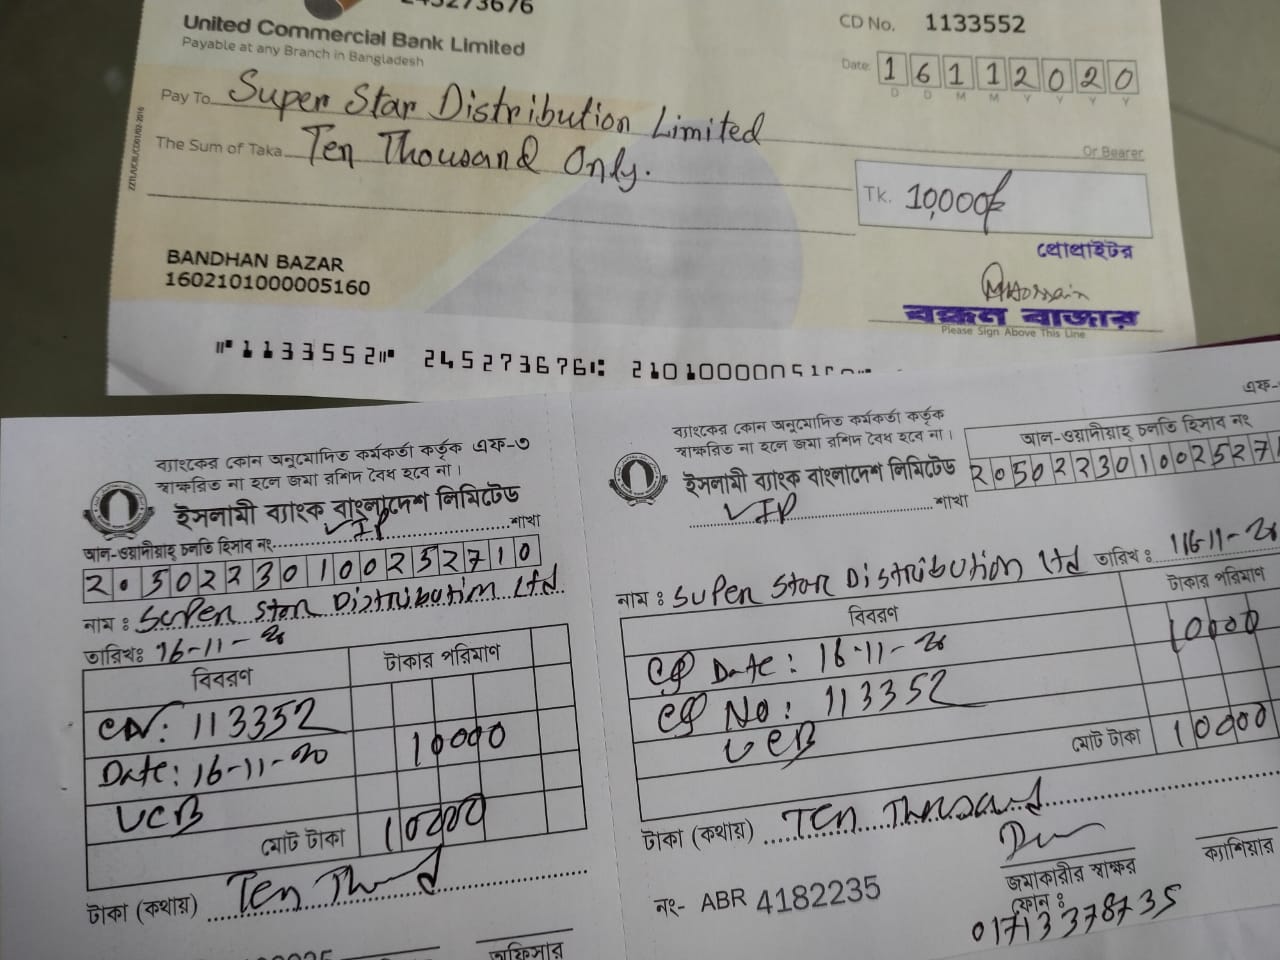 245273676
United Commercial Bank Limited
Payable at any Branch in Bangladesh
CD No. 1133552
Date: 16112020
D D M M Y Y Y Y
Pay To Super Star Distribution Limited
Or Bearer
The Sum of Taka Ten Thousand Only.
TK. 10,000/-
BANDHAN BAZAR
1602101000005160
প্রোপ্রাইটর
MHossain
বন্ধন বাজার
Please Sign Above This Line
1133552 245273676
ব্যাংকের কোন অনুমোদিত কর্মকর্তা কর্তৃক এফ-৩
স্বাক্ষরিত না হলে জমা রশিদ বৈধ হবে না।
ইসলামী ব্যাংক বাংলাদেশ লিমিটেড
VIP শাখা
আল-ওয়াদীয়াহ্ চলতি হিসাব নং
20502230100252710
নাম : Super Star Distribution Ltd
তারিখঃ 16-11-20
বিবরণ টাকার পরিমাণ
CN: 113352
Date: 16-11-20 10000
UCB
মোট টাকা 10000
টাকা (কথায়) Ten
অফিসার
ব্যাংকের কোন অনুমোদিত কর্মকর্তা কর্তৃক
স্বাক্ষরিত না হলে জমা রশিদ বৈধ হবে না।
ইসলামী ব্যাংক বাংলাদেশ লিমিটেড
VIP শাখা
এফ-
আল-ওয়াদীয়াহ্ চলতি হিসাব নং
2050223010025271
নাম : Super Star Distribution Ltd তারিখ : 16-11-20
বিবরণ টাকার পরিমাণ
CQ Date: 16-11-20 10000
CQ No: 113352
UCB
মোট টাকা 10000
টাকা (কথায়) Ten Thousand
নং- ABR 4182235
জমাকারীর স্বাক্ষর
ক্যাশিয়ার
ফোন :
01713378735